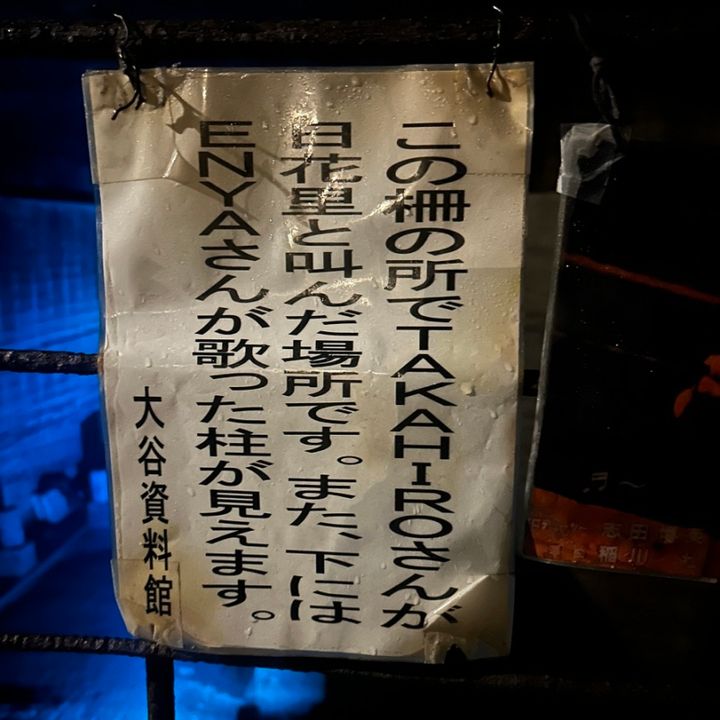 この柵の所でTAKAHIROさんが
日花里と叫んだ場所です。また、下には
ENYAさんが歌った柱が見えます。
大谷資料館
志田
稲川